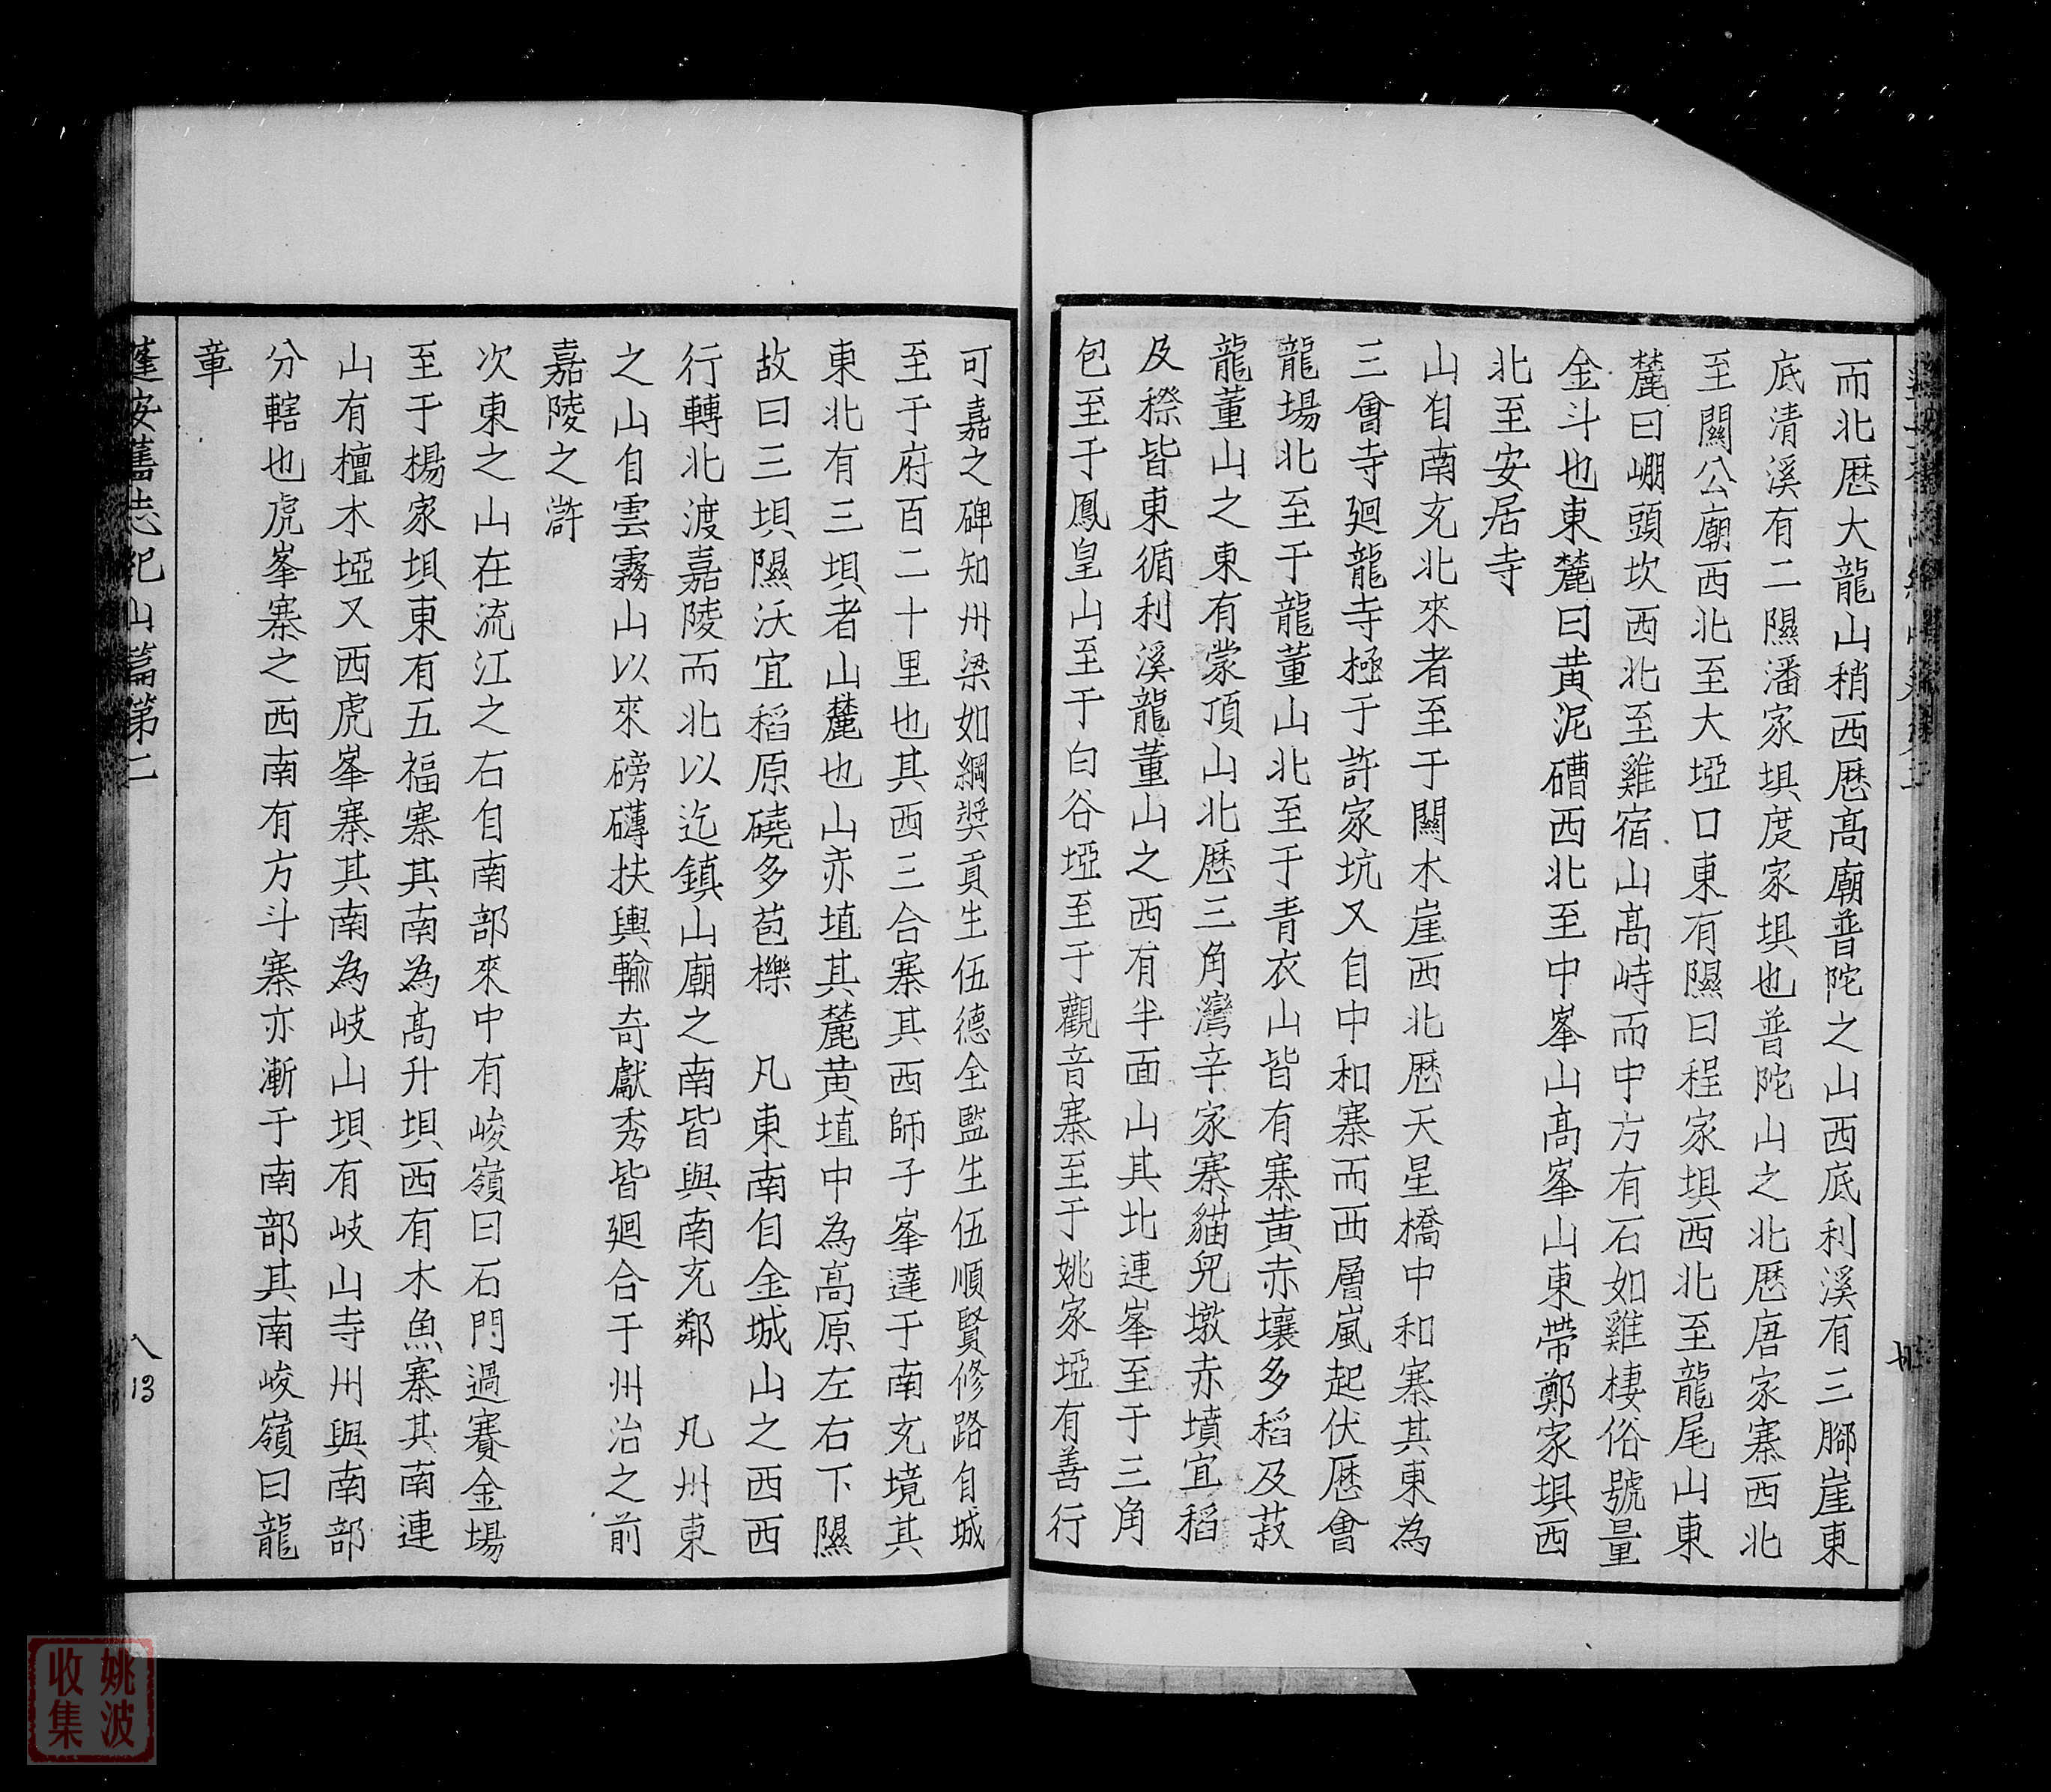 而北厯大龍山稍西厯髙廟普陀之山西底利溪有三腳崖東
底清溪有二隰潘家埧度家埧也普陀山之北厯唐家寨西北
至關公廟西北至大埡口東有隰曰程家埧西北至龍尾山東
麓曰崩頭坎西北至雞宿山髙峙而中方有石如雞棲俗號量
金斗也東麓曰黄泥磳西北至中峯山髙峯山東帶鄭家埧西
北至安居寺
山自南充北來者至于關木崖西北厯天星橋中和寨其東為
三會寺廻龍寺極于許家坑又自中和寨而西層嵐起伏厯會
龍場北至于龍董山北至于青衣山皆有寨黄赤壤多稻及菽
龍董山之東有蒙頂山北厯三角灣辛家寨貓兒墩赤墳宜稻
及穄皆東循利溪龍董山之西有半面山其北連峯至于三角
包至于鳳皇山至于白谷埡至于觀音寨至于姚家埡有善行
可嘉之碑知州梁如綱獎貢生伍德全監生伍順賢修路自城
至于府百二十里也其西三合寨其西師子峯達于南充境其
東北有三垻者山麓也山赤埴其麓黄埴中為高原左右下隰
故曰三垻隰沃宜稻原磽多苞櫟　凡東南自金城山之西西
行轉北渡嘉陵而北以迄鎮山廟之南皆與南充鄰　凡州東
之山自雲霧山以來磅礴扶輿輸奇獻秀皆廻合于州治之前
嘉陵之滸
次東之山在流江之右自南部來中有峻嶺曰石門過賽金場
至于楊家垻東有五福寨其南為髙升垻西有木魚寨其南連
山有檀木埡又西虎峯寨其南為岐山垻有岐山寺州與南部
分轄也虎峯寨之西南有方斗寨亦漸于南部其南峻嶺曰龍
章
蓬安舊志紀山篇第二
八
13
姚波
收集